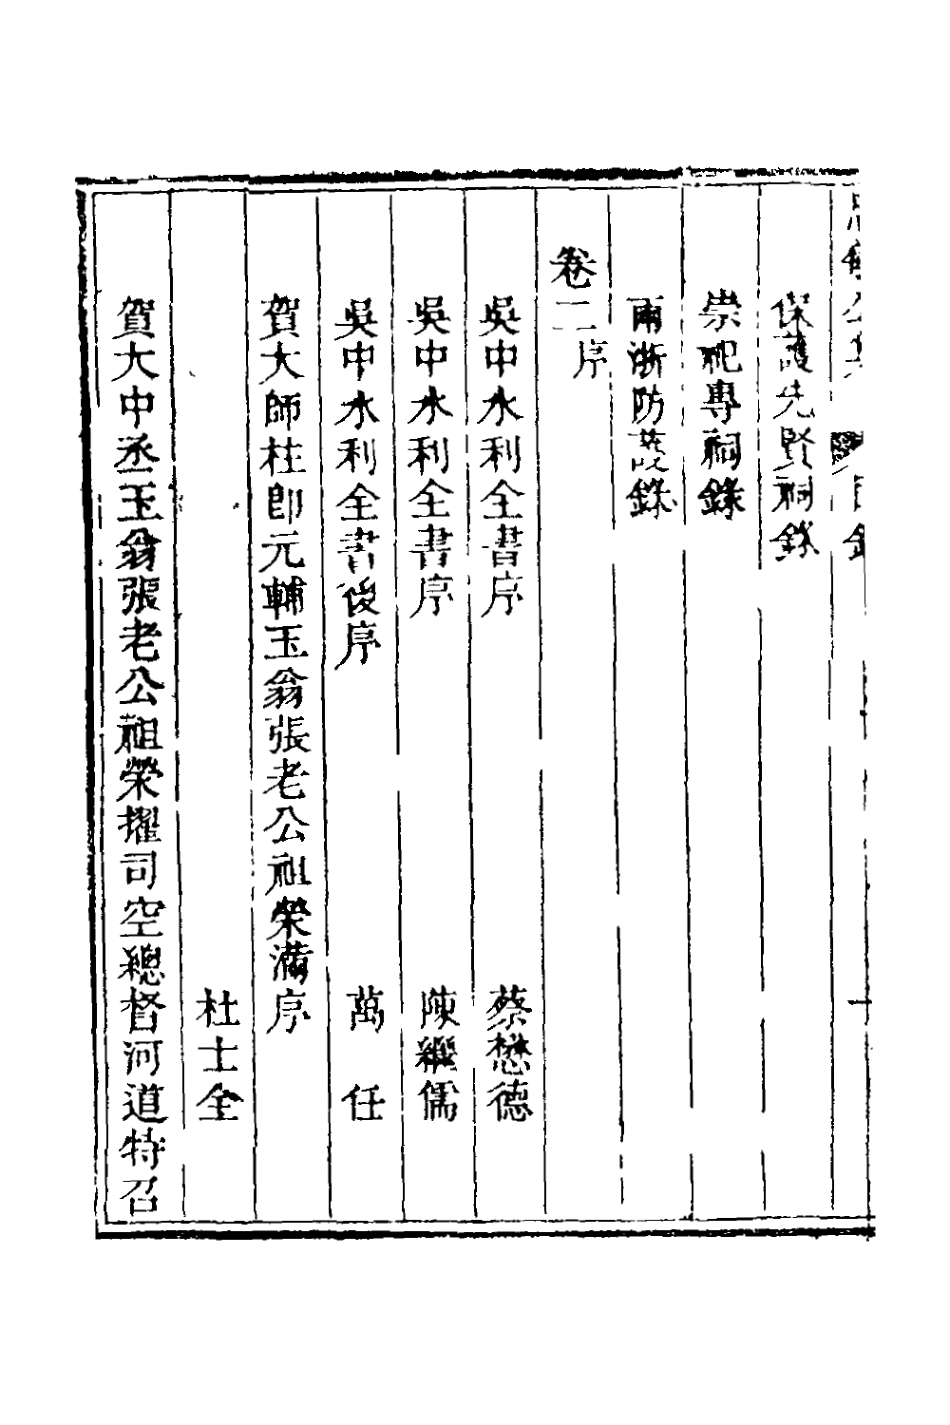 保護先賢祠錄
崇祀專祠錄
兩浙防護錄
卷二序
吳中水利全書序 蔡懋德
吳中水利全書序 陳繼儒
吳中水利全書後序 萬 任
賀大師柱卽元輔玉翁張老公祖榮滿序
杜士全
賀大中丞玉翁張老公祖榮擢司空總督河道特召